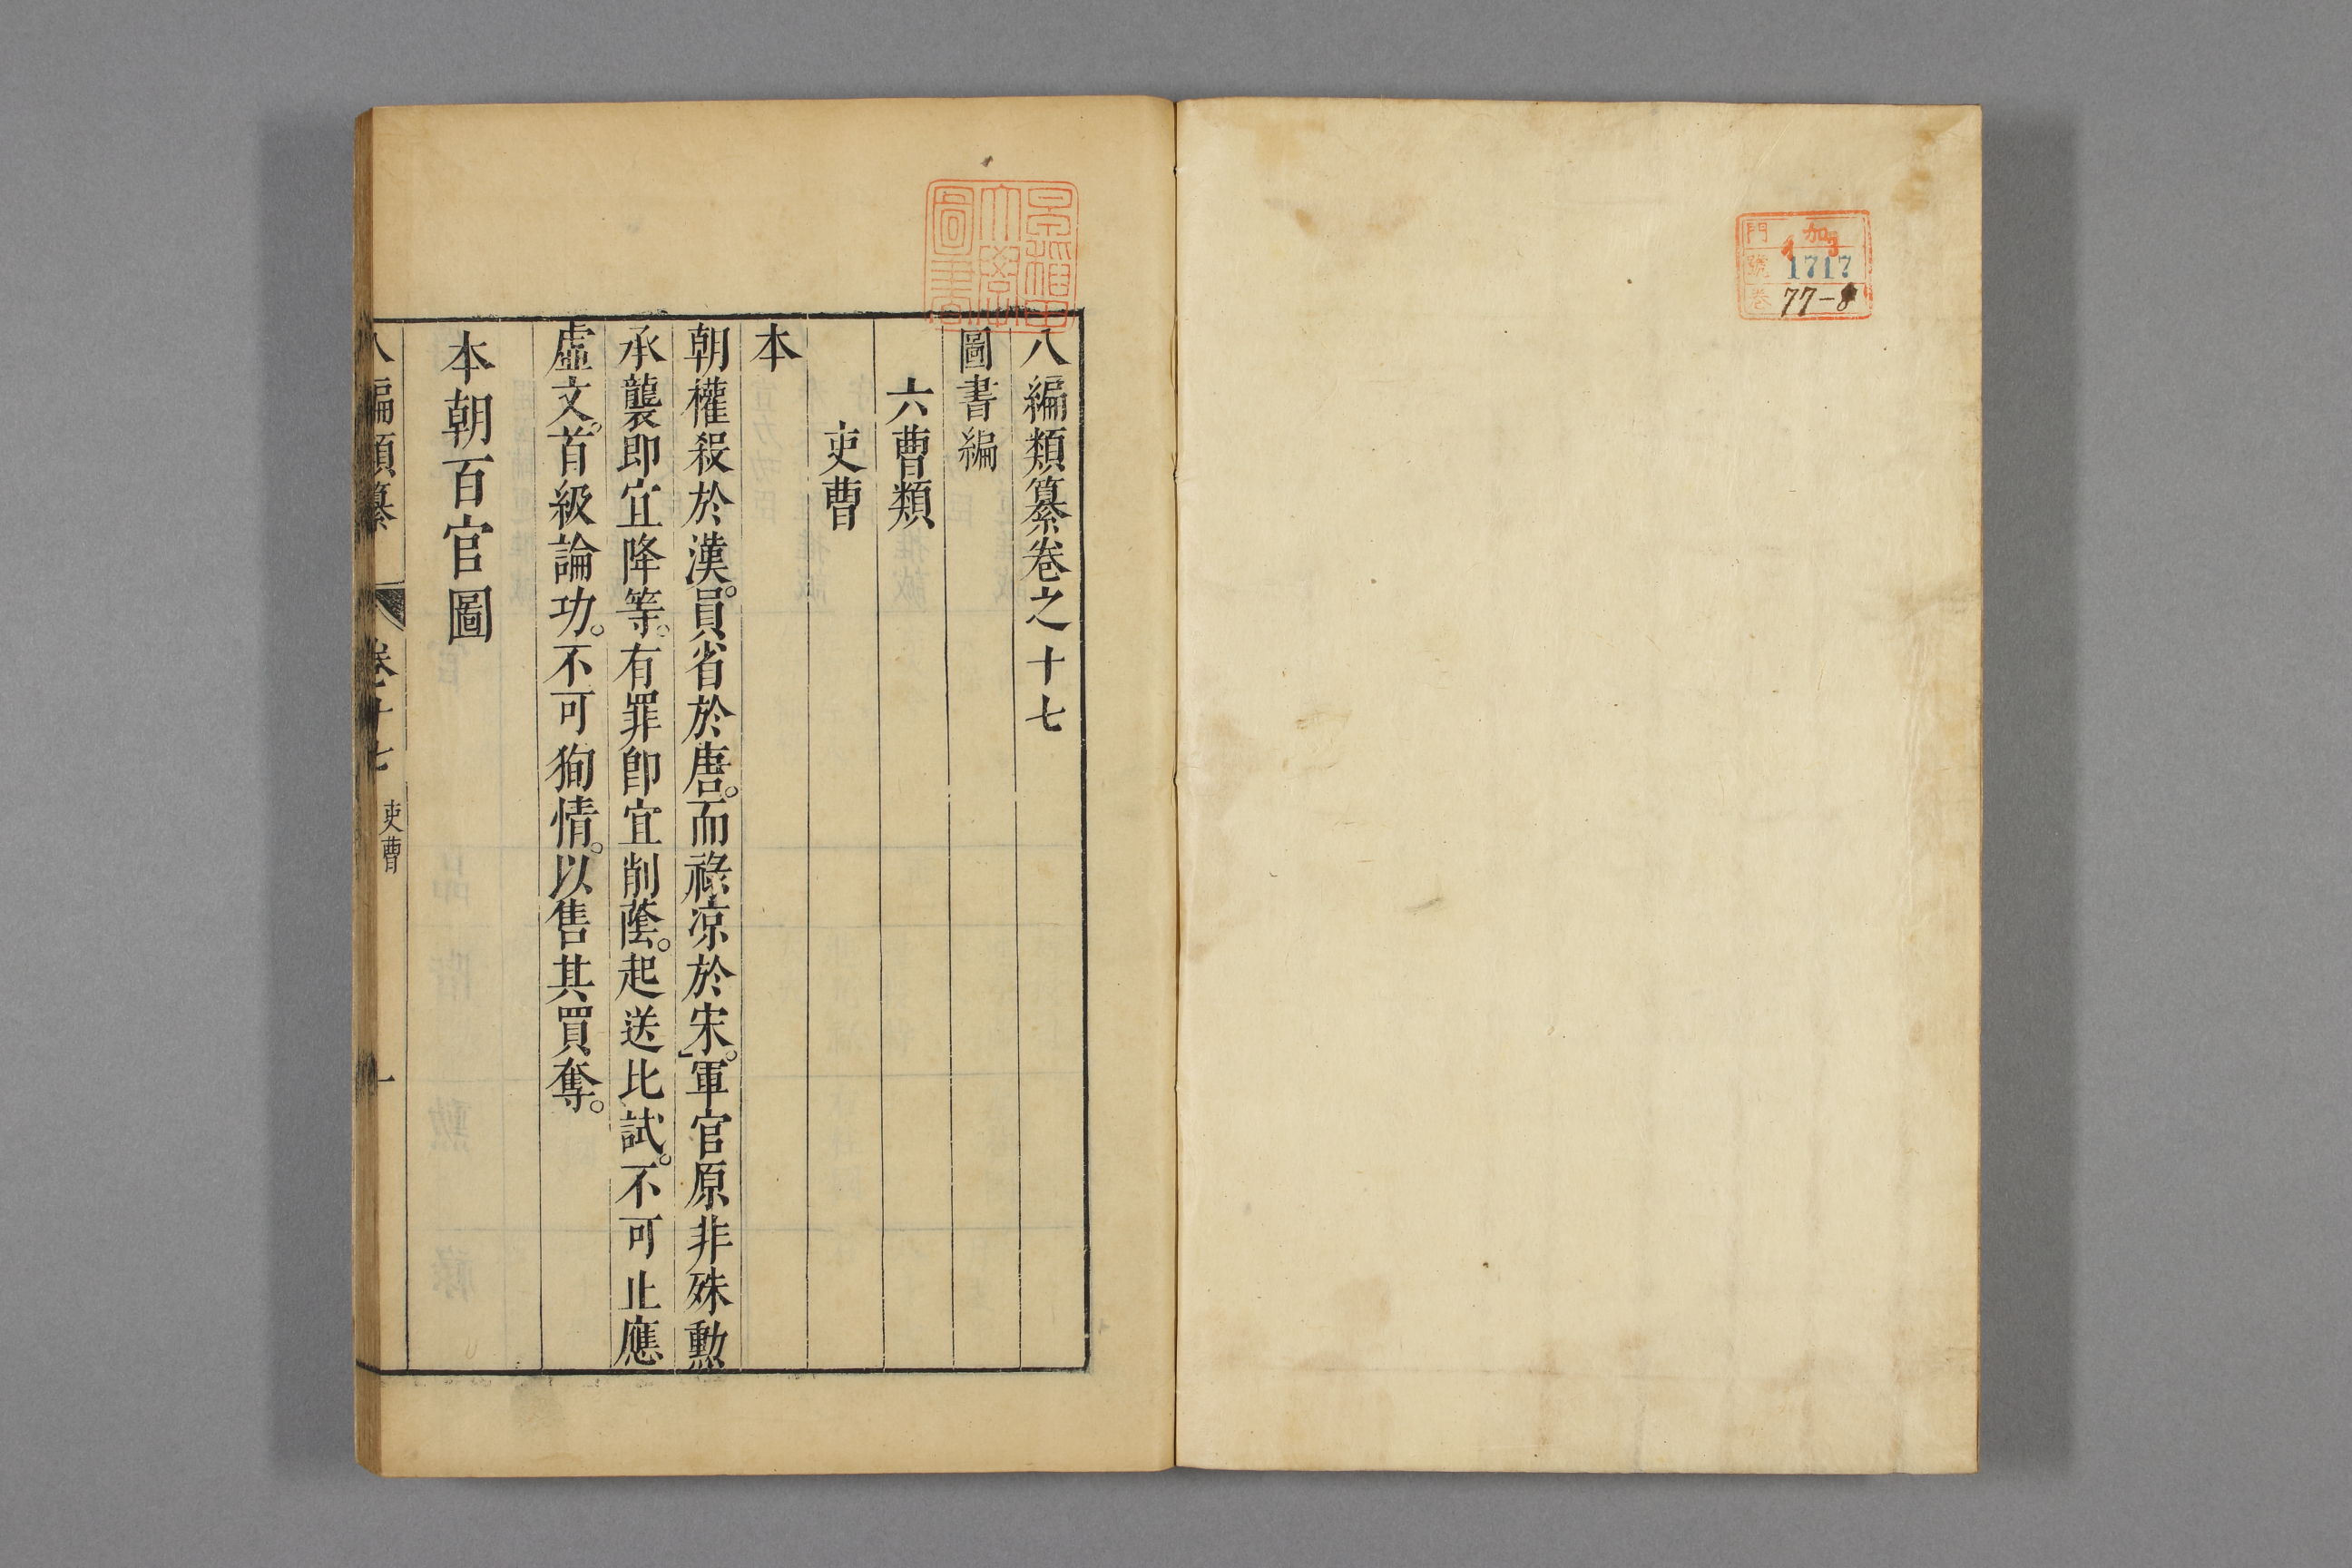 門 加
號 1717
卷 77-8
早稲田
大學
圖書
八編類纂卷之十七
圖書編
六曹類
吏曹
本
朝權殺於漢。員省於唐。而祿凉於宋。軍官原非殊勳
承襲即宜降等。有罪卽宜削蔭。起送比試。不可止應
虛文。首級論功。不可狥情。以售其買奪。
本朝百官圖
八編類纂 卷十七 吏曹 一